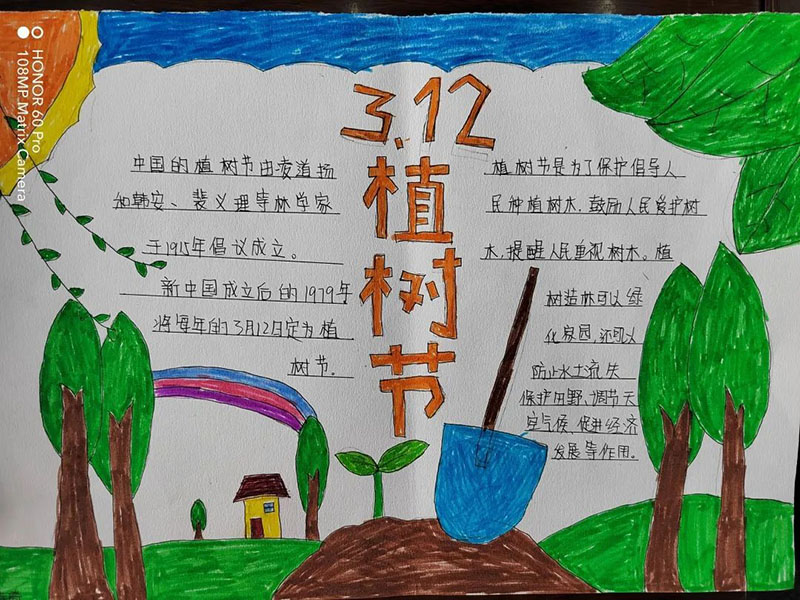 HONOR 60 Pro
108MP Matrix Camera
3.12
植
树
节
中国的植树节由凌道扬
和韩安、裴义理等林学家
于1915年倡议成立。
新中国成立后的1979年
将每年的3月12日定为植
树节。
植树节是为了保护倡导人
民种植树木,鼓励人民爱护树
木,提醒人民重视树木。植
树造林可以绿
化家园,还可以
防止水土流失
保护田野、调节天
空气候、促进经济
发展等作用。